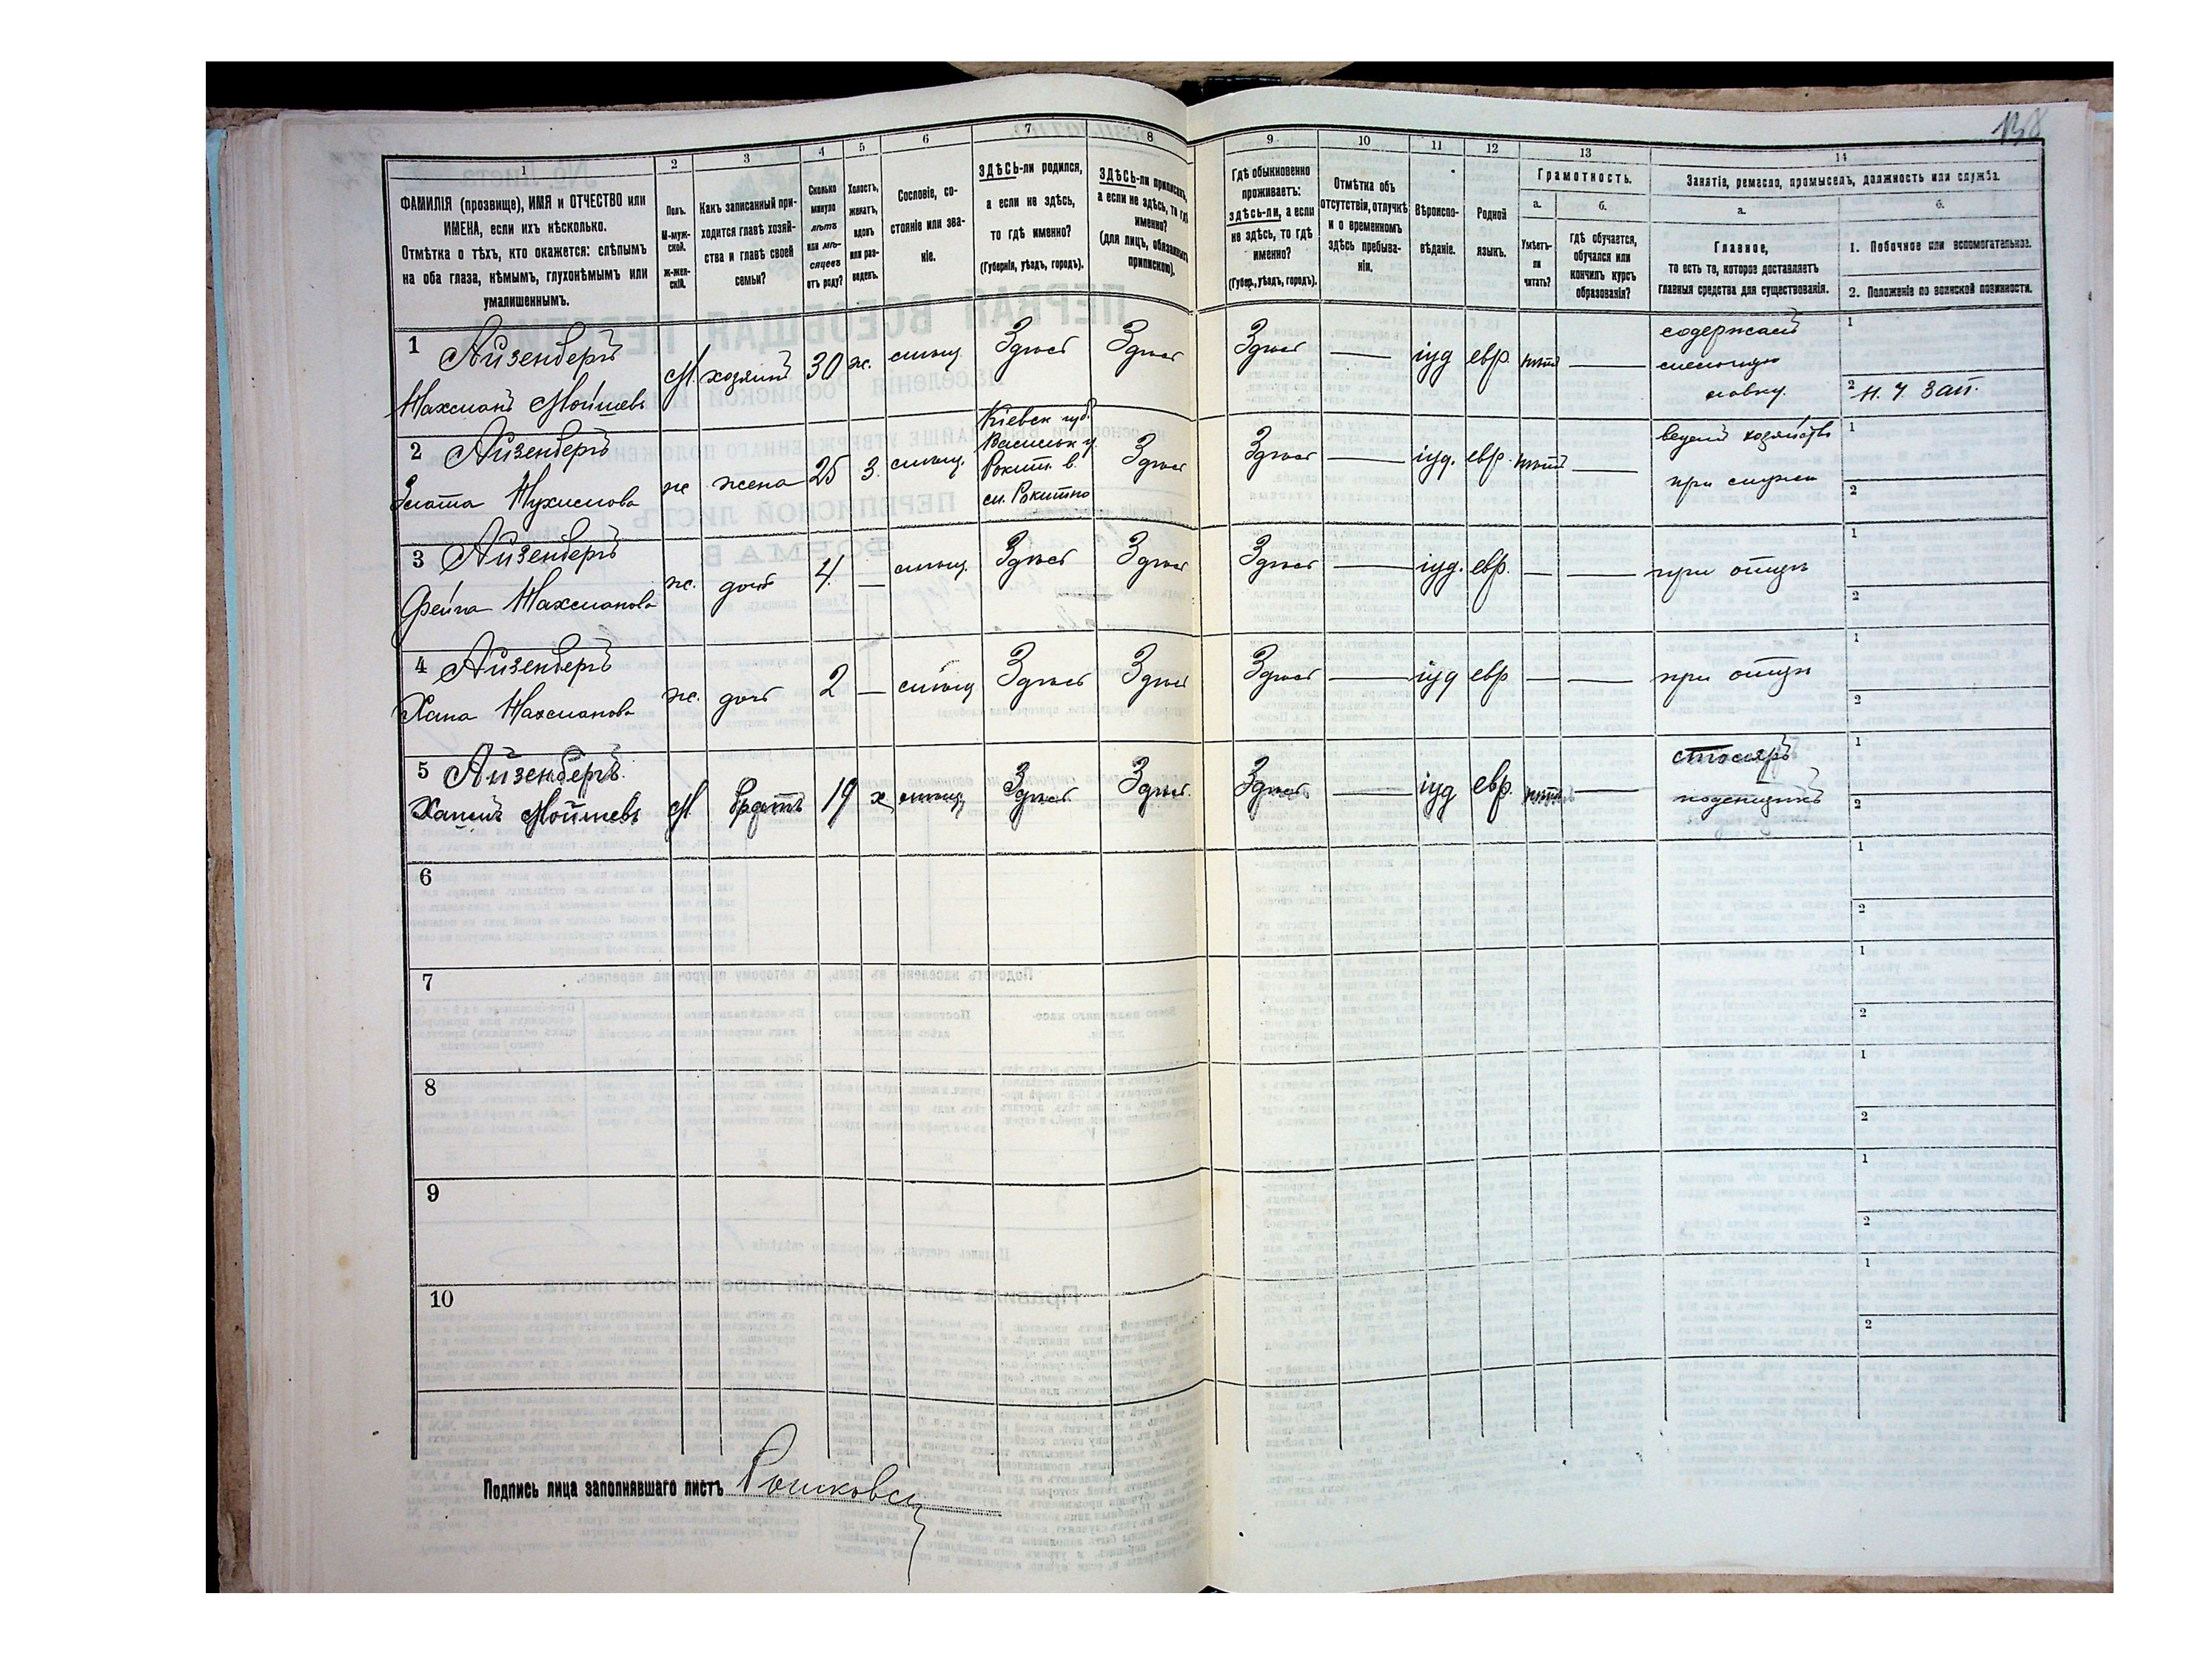 138
1 2 3 4 5 6 7 8 9 10 11 12 13 14
ФАМИЛІЯ (прозвище), ИМЯ и ОТЧЕСТВО или
ИМЕНА, если ихъ нѣсколько.
Отмѣтка о тѣхъ, кто окажется: слѣпымъ
на оба глаза, нѣмымъ, глухонѣмымъ или
умалишеннымъ.
Полъ.
М-муж-
ской.
ж-жен-
скій.
Какъ записанный при-
ходится главѣ хозяй-
ства и главѣ своей
семьи?
Сколько
минуло
лѣтъ
или мѣ-
сяцевъ
отъ роду?
Холостъ,
женатъ,
вдовъ
или раз-
веденъ.
Сословіе, со-
стояніе или зва-
ніе.
ЗДѢСЬ-ли родился,
а если не здѣсь,
то гдѣ именно?
(Губернія, уѣздъ, городъ).
ЗДѢСЬ-ли приписанъ,
а если не здѣсь, то гдѣ
именно?
(для лицъ, обязанныхъ
припискою).
Гдѣ обыкновенно
проживаетъ:
здѣсь-ли, а если
не здѣсь, то гдѣ
именно?
(Губер., уѣздъ, городъ).
Отмѣтка объ
отсутствіи, отлучкѣ
и о временномъ
здѣсь пребыва-
ніи.
Вѣроиспо-
вѣданіе.
Родной
языкъ.
Грамотность.
а.
Умѣетъ-
ли
читать?
б.
гдѣ обучается,
обучался или
кончилъ курсъ
образованія?
Занятіе, ремесло, промыселъ, должность или служба.
а.
Главное,
то есть то, которое доставляетъ
главныя средства для существованія.
б.
1. Побочное или вспомогательное.
2. Положеніе по воинской повинности.
1 Айзенбергъ
Нахманъ Мойшевъ
М. хозяинъ 30 ж. мѣщ. Здѣсь Здѣсь Здѣсь — іуд евр. нѣтъ —
содержаніе
мелочную
лавку.
1
2 Н. Ч. Зап.
2 Айзенбергъ
Злата Нухимова
ж жена 25 з. мѣщ.
Кіевск губ.
Васильк у.
Рокит. в.
м. Рокитно
Здѣсь Здѣсь — іуд. евр. нѣтъ —
ведетъ хозяйство
при мужѣ
1
2
3 Айзенбергъ
Фейга Нахманова
ж. дочь 4 — мѣщ. Здѣсь Здѣсь Здѣсь — іуд. евр. — — при отцѣ
1
2
4 Айзенбергъ
Хана Нахманова
ж. дочь 2 — мѣщ Здѣсь Здѣсь Здѣсь — іуд евр — — при отцѣ
1
2
5 Айзенбергъ
Хаимъ Мойшевъ
М братъ 19 х мѣщ. Здѣсь Здѣсь. Здѣсь — іуд евр. нѣтъ —
столяръ
поденщикъ
1
2
6
1
2
7
1
2
8
1
2
9
1
2
10
1
2
Подпись лица заполнявшаго листъ